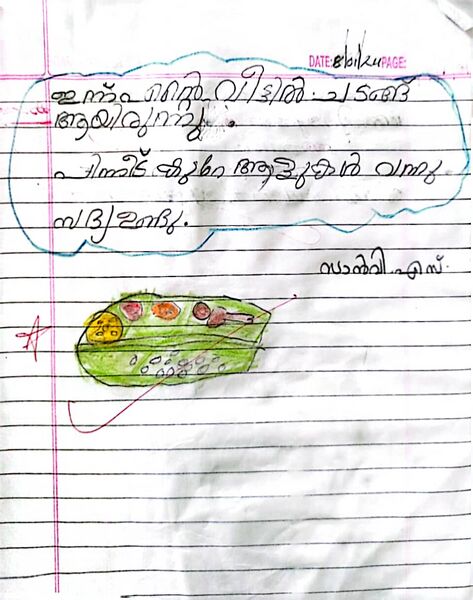 DATE: 8/01/24 PAGE:
ഇന്ന് എന്റെ വീട്ടിൽ ചടങ്ങ്
ആയിരുന്നു.
പിന്നീട് കുറേ ആളുകൾ വന്നു
സദ്യ ഉണ്ടു.
സാൻവി എസ്